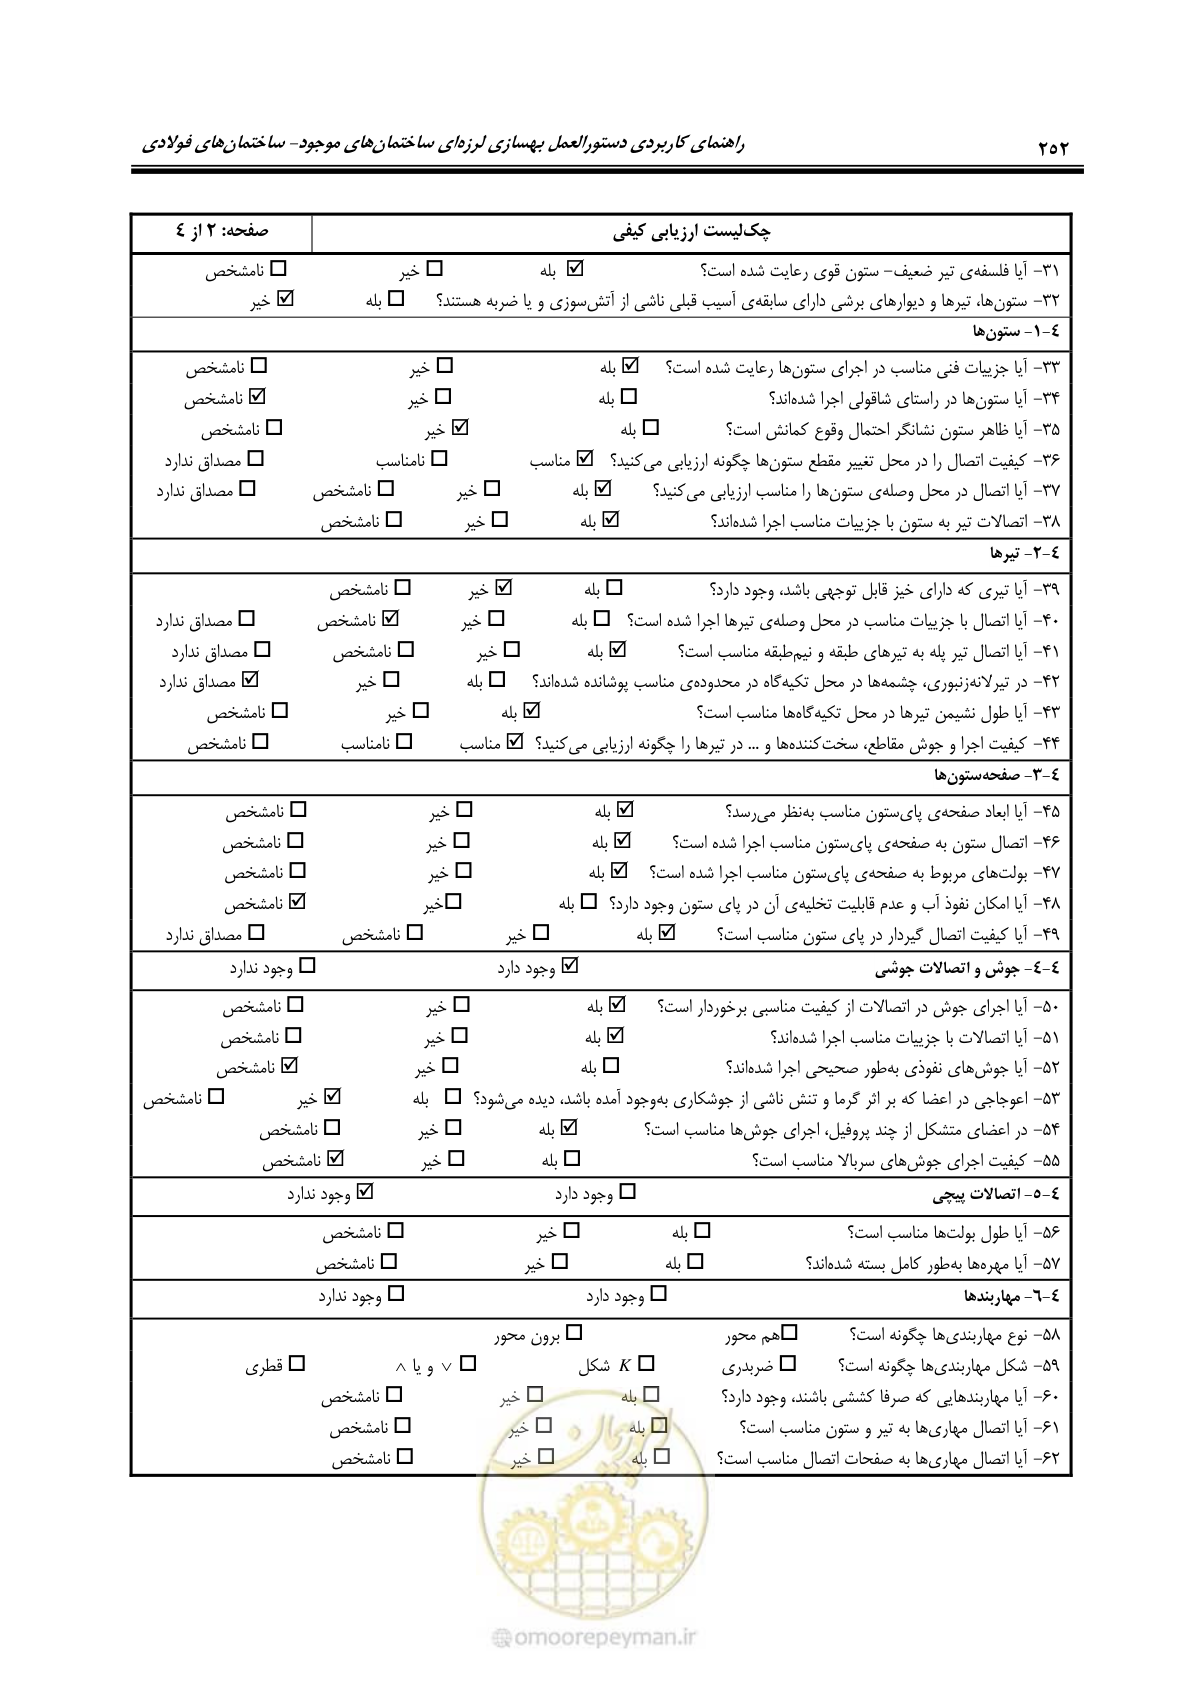 ۲۵۲ راهنمای کاربردی دستورالعمل بهسازی لرزه‌ای ساختمان‌های موجود- ساختمان‌های فولادی
چک‌لیست ارزیابی کیفی صفحه: ۲ از ٤
۳۱- آیا فلسفه‌ی تیر ضعیف- ستون قوی رعایت شده است؟ ☑ بله ☐ خیر ☐ نامشخص
۳۲- ستون‌ها، تیرها و دیوارهای برشی دارای سابقه‌ی آسیب قبلی ناشی از آتش‌سوزی و یا ضربه هستند؟ ☐ بله ☑ خیر
٤-۱- ستون‌ها
۳۳- آیا جزییات فنی مناسب در اجرای ستون‌ها رعایت شده است؟ ☑ بله ☐ خیر ☐ نامشخص
۳۴- آیا ستون‌ها در راستای شاقولی اجرا شده‌اند؟ ☐ بله ☐ خیر ☑ نامشخص
۳۵- آیا ظاهر ستون نشانگر احتمال وقوع کمانش است؟ ☐ بله ☑ خیر ☐ نامشخص
۳۶- کیفیت اتصال را در محل تغییر مقطع ستون‌ها چگونه ارزیابی می‌کنید؟ ☑ مناسب ☐ نامناسب ☐ مصداق ندارد
۳۷- آیا اتصال در محل وصله‌ی ستون‌ها را مناسب ارزیابی می‌کنید؟ ☑ بله ☐ خیر ☐ نامشخص ☐ مصداق ندارد
۳۸- اتصالات تیر به ستون با جزییات مناسب اجرا شده‌اند؟ ☑ بله ☐ خیر ☐ نامشخص
٤-۲- تیرها
۳۹- آیا تیری که دارای خیز قابل توجهی باشد، وجود دارد؟ ☐ بله ☑ خیر ☐ نامشخص
۴۰- آیا اتصال با جزییات مناسب در محل وصله‌ی تیرها اجرا شده است؟ ☐ بله ☐ خیر ☑ نامشخص ☐ مصداق ندارد
۴۱- آیا اتصال تیر پله به تیرهای طبقه و نیم‌طبقه مناسب است؟ ☑ بله ☐ خیر ☐ نامشخص ☐ مصداق ندارد
۴۲- در تیرلانه‌زنبوری، چشمه‌ها در محل تکیه‌گاه در محدوده‌ی مناسب پوشانده شده‌اند؟ ☐ بله ☐ خیر ☑ مصداق ندارد
۴۳- آیا طول نشیمن تیرها در محل تکیه‌گاه‌ها مناسب است؟ ☑ بله ☐ خیر ☐ نامشخص
۴۴- کیفیت اجرا و جوش مقاطع، سخت‌کننده‌ها و ... در تیرها را چگونه ارزیابی می‌کنید؟ ☑ مناسب ☐ نامناسب ☐ نامشخص
٤-۳- صفحه‌ستون‌ها
۴۵- آیا ابعاد صفحه‌ی پای‌ستون مناسب به‌نظر می‌رسد؟ ☑ بله ☐ خیر ☐ نامشخص
۴۶- اتصال ستون به صفحه‌ی پای‌ستون مناسب اجرا شده است؟ ☑ بله ☐ خیر ☐ نامشخص
۴۷- بولت‌های مربوط به صفحه‌ی پای‌ستون مناسب اجرا شده است؟ ☑ بله ☐ خیر ☐ نامشخص
۴۸- آیا امکان نفوذ آب و عدم قابلیت تخلیه‌ی آن در پای ستون وجود دارد؟ ☐ بله ☐ خیر ☑ نامشخص
۴۹- آیا کیفیت اتصال گیردار در پای ستون مناسب است؟ ☑ بله ☐ خیر ☐ نامشخص ☐ مصداق ندارد
٤-٤- جوش و اتصالات جوشی ☑ وجود دارد ☐ وجود ندارد
۵۰- آیا اجرای جوش در اتصالات از کیفیت مناسبی برخوردار است؟ ☑ بله ☐ خیر ☐ نامشخص
۵۱- آیا اتصالات با جزییات مناسب اجرا شده‌اند؟ ☑ بله ☐ خیر ☐ نامشخص
۵۲- آیا جوش‌های نفوذی به‌طور صحیحی اجرا شده‌اند؟ ☐ بله ☐ خیر ☑ نامشخص
۵۳- اعوجاجی در اعضا که بر اثر گرما و تنش ناشی از جوشکاری به‌وجود آمده باشد، دیده می‌شود؟ ☐ بله ☑ خیر ☐ نامشخص
۵۴- در اعضای متشکل از چند پروفیل، اجرای جوش‌ها مناسب است؟ ☑ بله ☐ خیر ☐ نامشخص
۵۵- کیفیت اجرای جوش‌های سربالا مناسب است؟ ☐ بله ☐ خیر ☑ نامشخص
٤-۵- اتصالات پیچی ☐ وجود دارد ☑ وجود ندارد
۵۶- آیا طول بولت‌ها مناسب است؟ ☐ بله ☐ خیر ☐ نامشخص
۵۷- آیا مهره‌ها به‌طور کامل بسته شده‌اند؟ ☐ بله ☐ خیر ☐ نامشخص
٤-۶- مهاربندها ☐ وجود دارد ☐ وجود ندارد
۵۸- نوع مهاربندی‌ها چگونه است؟ ☐ هم محور ☐ برون محور
۵۹- شکل مهاربندی‌ها چگونه است؟ ☐ ضربدری ☐ K شکل ☐ ∨ و یا ∧ ☐ قطری
۶۰- آیا مهاربندهایی که صرفا کششی باشند، وجود دارد؟ ☐ بله ☐ خیر ☐ نامشخص
۶۱- آیا اتصال مهاری‌ها به تیر و ستون مناسب است؟ ☐ بله ☐ خیر ☐ نامشخص
۶۲- آیا اتصال مهاری‌ها به صفحات اتصال مناسب است؟ ☐ بله ☐ خیر ☐ نامشخص
امورپیمان
omoorepeyman.ir